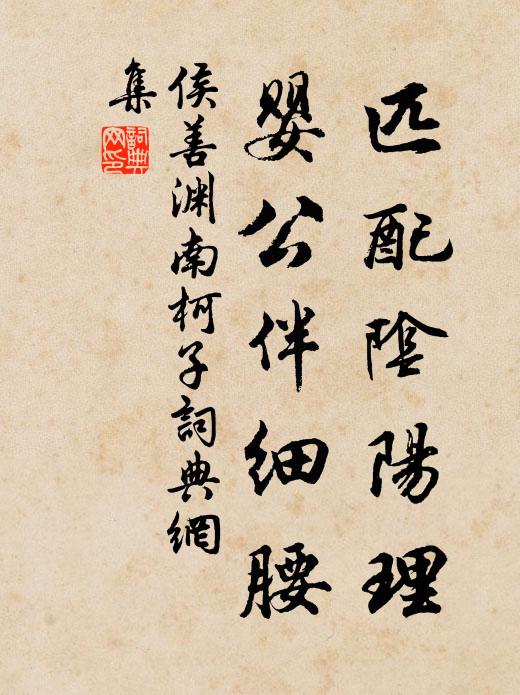 匹配陰陽理
嬰公伴細腰
侯善渊南柯子詞典網
集
詞典
网印